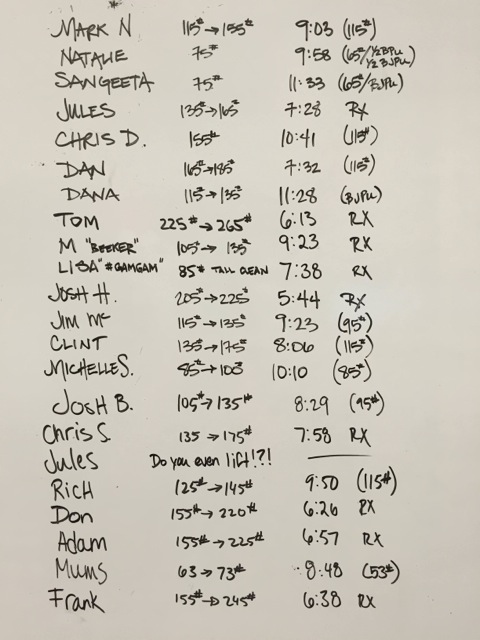 MARK N 115# → 155# 9:03 (115#)
NATALIE 75# 9:58 (65#/½BPU ½BJPU)
SANGEETA 75# 11:33 (65#/BJPU)
JULES 135# → 165# 7:28 RX
CHRIS D. 155# 10:41 (115#)
DAN 165# → 185# 7:32 (115#)
DANA 115# → 135# 11:28 (BJPU)
TOM 225# → 265# 6:13 RX
M "BEEKER" 105# → 135# 9:23 RX
LISA "#GAMGAM" 85# TALL CLEAN 7:38 RX
JOSH H. 205# → 225# 5:44 RX
JIM MC 115# → 135# 9:23 (95#)
CLINT 135# → 175# 8:06 (115#)
MICHELLE S. 85# → 100# 10:10 (85#)
JOSH B. 105# → 135# 8:29 (95#)
Chris S. 135 → 175# 7:58 RX
Jules Do you even lift!?!
Rich 125# → 145# 9:50 (115#)
Don 155# → 220# 6:26 RX
Adam 155# → 225# 6:57 RX
Mums 63 → 73# :48 (53#)
Frank 155# → 245# 6:38 RX